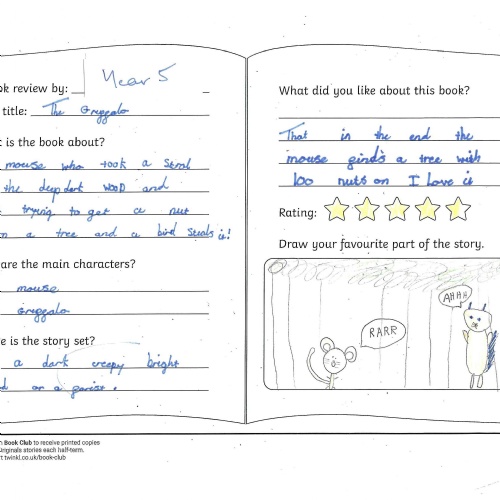 ok review by: Year 5
title: The Greggalo
t is the book about?
mouse who took a stral
the deep dark wood and
trying to get a nut
n a tree and a bird steals it!
are the main characters?
mouse
Greggalo
e is the story set?
a dark creepy bright
d or a gorist.
n Book Club to receive printed copies
Originals stories each half-term.
t twinkl.co.uk/book-club
What did you like about this book?
That in the end the
mouse ginds a tree with
100 nuts on I love it
Rating:
Draw your favourite part of the story.
RARR
AHHH